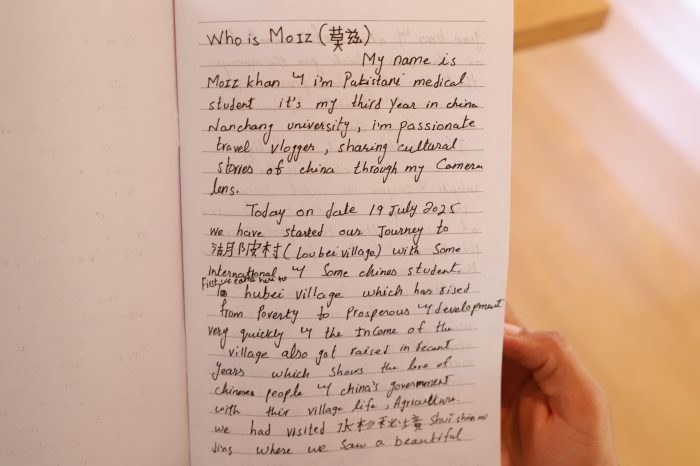 Who is Moiz (莫兹)
My name is
Moiz khan & i'm Pakistani medical
student it's my third year in china
Nanchang university, i'm passionate
travel vlogger, sharing cultural
stories of china through my Camera
lens.
Today on date 19 July 2025
we have started our Journey to
湖陂村 (Loubei village) with Some
international & Some chines student.
First we came here to
hubei village which has rised
from Poverty to Prosperous & development
very quickly & the InCome of the
village also got raised in recent
years which shows the love of
chinese people & china's government
with this village life, Agriculture.
we had visited 水杉秘境 Shui shan mi
Jing where we saw a beautiful